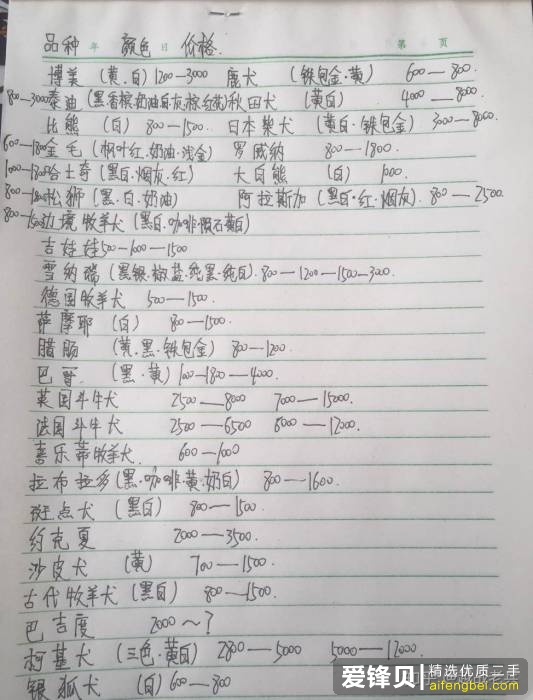 品种 年 颜色 日 价格. 第 页
博美 (黄.白) 1200—3000 鹿犬 (铁包金·黄) 600—800.
800—3000 泰迪 (黑.香槟.奶油.白.灰.棕.红) 秋田犬 (黄白) 4000—8000
比熊 (白) 800—1500. 日本柴犬 (黄白·铁包金) 3000—8000
600—1800 金毛 (枫叶红.奶油·浅金) 罗威纳 800—1800.
1000—1800 哈士奇 (黑白.烟灰.红) 大白熊 (白) 1000.
800—1800 松狮 (黑.白.奶油) 阿拉斯加 (黑白·红·烟灰). 800—2500
800—1500 边境牧羊犬 (黑白.咖啡·陨石黄白)
吉娃娃 500—1000—1500
雪纳瑞 (黑银.椒盐.纯黑·纯白) 800—1200—1500—3000.
德国牧羊犬 500—1500.
萨摩耶 (白) 800—1500.
腊肠 (黄.黑·铁包金) 800—1200.
巴哥. (黑·黄) 1000—1800—4000.
英国斗牛犬 2500—8000 7000—15000.
法国斗牛犬 2500—6500 6000—12000.
喜乐蒂牧羊犬 600—1000
拉布拉多 (黑·咖啡·黄.奶白) 800—1600.
斑点犬 (黑白) 800—1500.
约克夏 2000—3500.
沙皮犬 (黄) 700—1500.
古代牧羊犬 (黑白) 800—1500.
巴吉度 2000～?
柯基犬 (三色·黄白) 2800—5000 5000—12000.
银狐犬 (白) 600—800
爱锋贝 精选优质二手
aifengbei.com